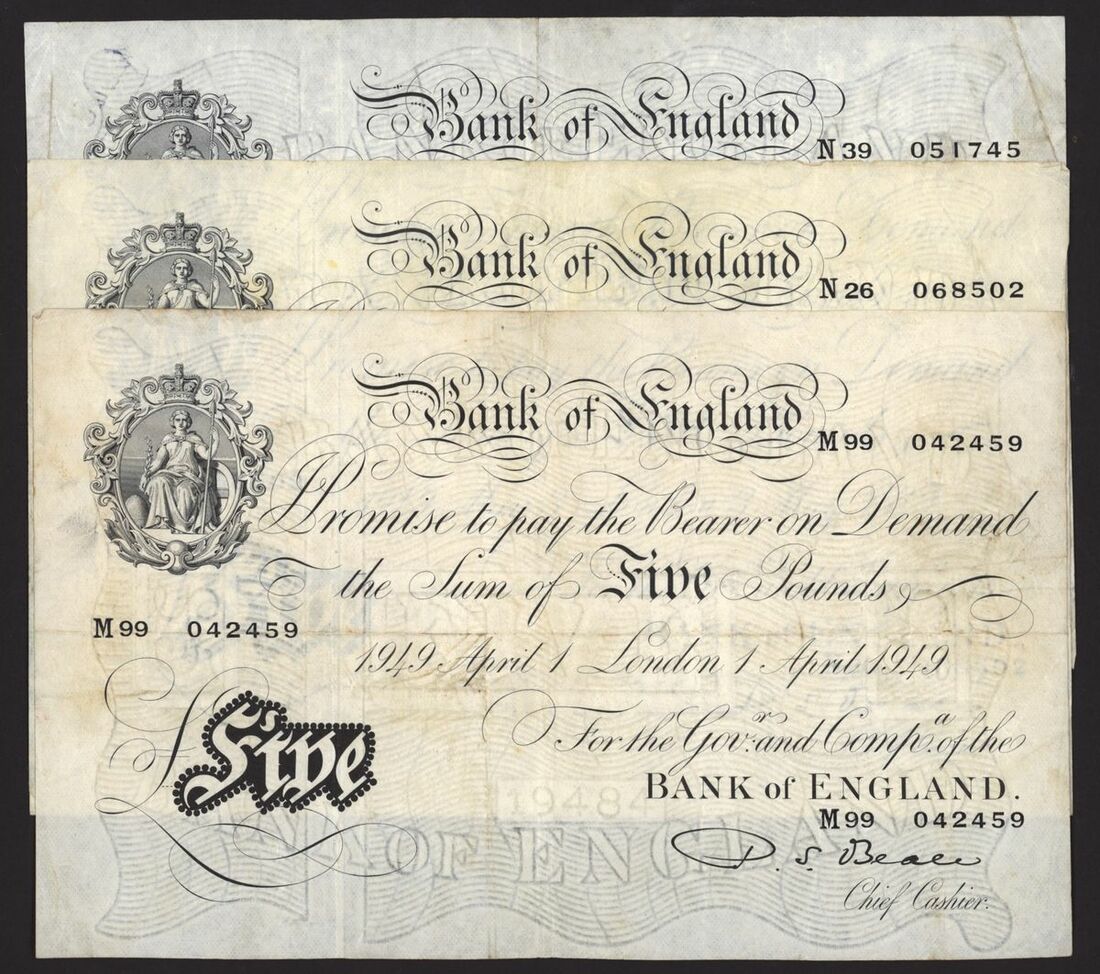 Bank of England
N 39 051745
Bank of England
N 26 068502
Bank of England
M 99 042459
I Promise to pay the Bearer on Demand
the Sum of Five Pounds
M 99 042459
1949 April 1 London 1 April 1949
For the Gov.r and Comp.a of the
Five
BANK of ENGLAND.
1948
M 99 042459
OF ENGLAN
P. S. Beale
Chief Cashier.